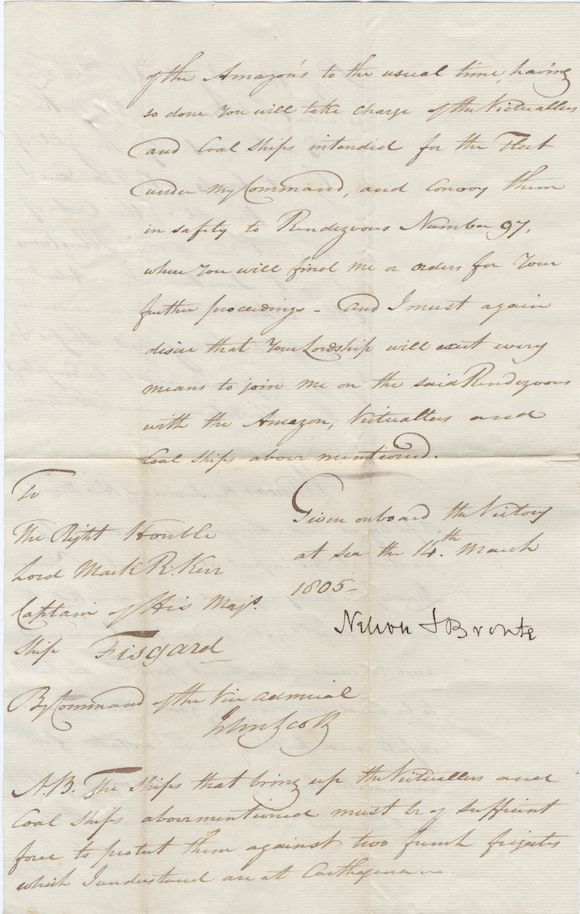 of the Amazon's to the usual time, having
so done You will take charge of the Victuallers
and Coal Ships intended for the Fleet
under my Command, and Convoy them
in safety to Rendezvous Number 97,
where You will find me or orders for Your
further proceedings - and I must again
desire that Your Lordship will exert every
means to join me on the said Rendezvous
with the Amazon, Victuallers and
Coal Ships above mentioned.
Given onboard the Victory
at sea the 14th. March
1805 -
Nelson & Bronte
To
The Right Honble
Lord Mark R. Kerr
Captain of His Majs.
Ship Fisgard
By Command of the Vice Admiral
John Scott
N.B. The Ships that bring up the Victuallers and
Coal Ships abovementioned must be of sufficient
force to protect them against two french frigates
which I understand are at Carthagena -